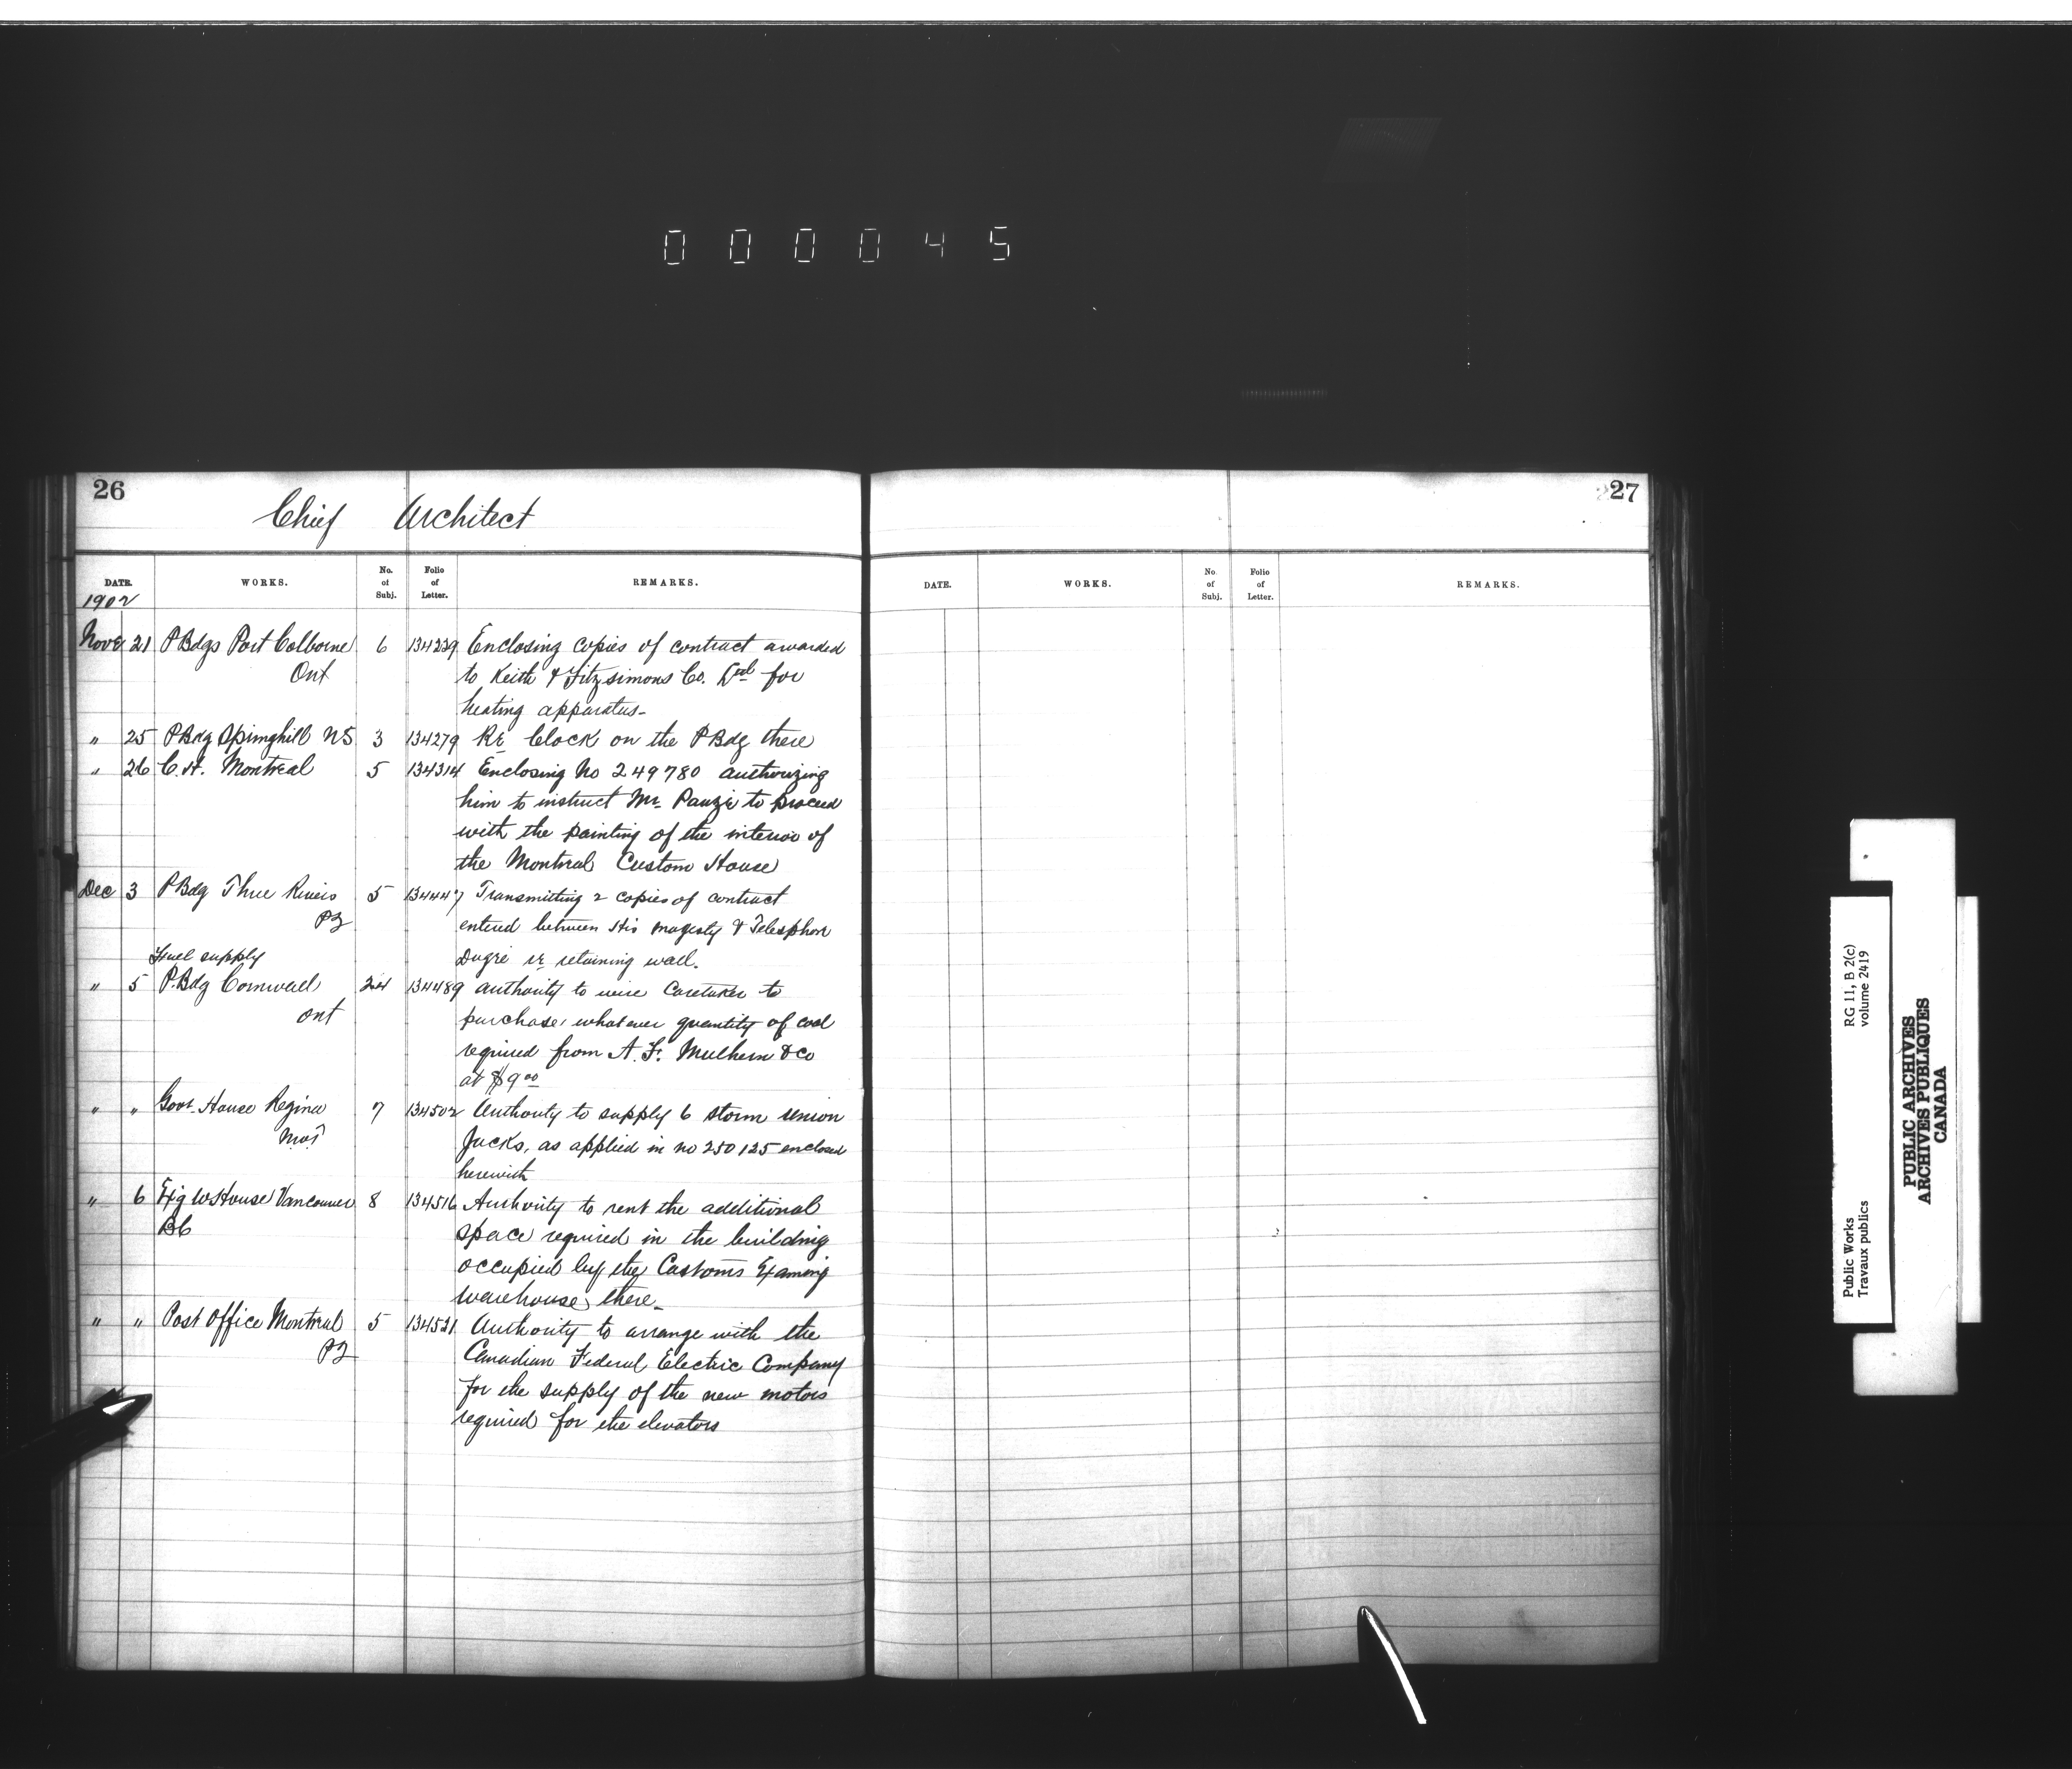 000045
26
Chief Architect
DATE. WORKS. No. of Subj. Folio of Letter. REMARKS.
1902
Nov 21 P Bdgs Port Colborne 6 134239 Enclosing copies of contract awarded
Ont to Keith & Fitzsimons Co. Ltd for
heating apparatus-
" 25 P Bdg Springhill NS 3 134279 Re Clock on the P Bdg there
" 26 C.H. Montreal 5 134314 Enclosing No 249780 authorizing
him to instruct Mr. Pauzé to proceed
with the painting of the interior of
the Montreal Custom House
Dec 3 P Bdg Three Rivers 5 134447 Transmitting 2 copies of contract
PQ entered between His Majesty & Telesphore
Fuel supply Dugré re retaining wall.
" 5 P. Bdg Cornwall 24 134489 Authority to wire Caretaker to
Ont purchase whatever quantity of coal
required from A. F. Mulhern & Co
at $9.00
" " Govt. House Regina 7 134502 Authority to supply 6 storm union
Jacks, as applied in no 250125 enclosed
herewith
" 6 Exg WHouse Vancouver 8 134516 Authority to rent the additional
BC space required in the building
occupied by the Customs Examing
warehouse there-
" " Post Office Montreal 5 134521 Authority to arrange with the
PQ Canadian Federal Electric Company
for the supply of the new motors
required for the elevators
27
DATE. WORKS. No. of Subj. Folio of Letter. REMARKS.
Public Works RG 11, B 2(c)
Travaux publics volume 2419
PUBLIC ARCHIVES
ARCHIVES PUBLIQUES
CANADA